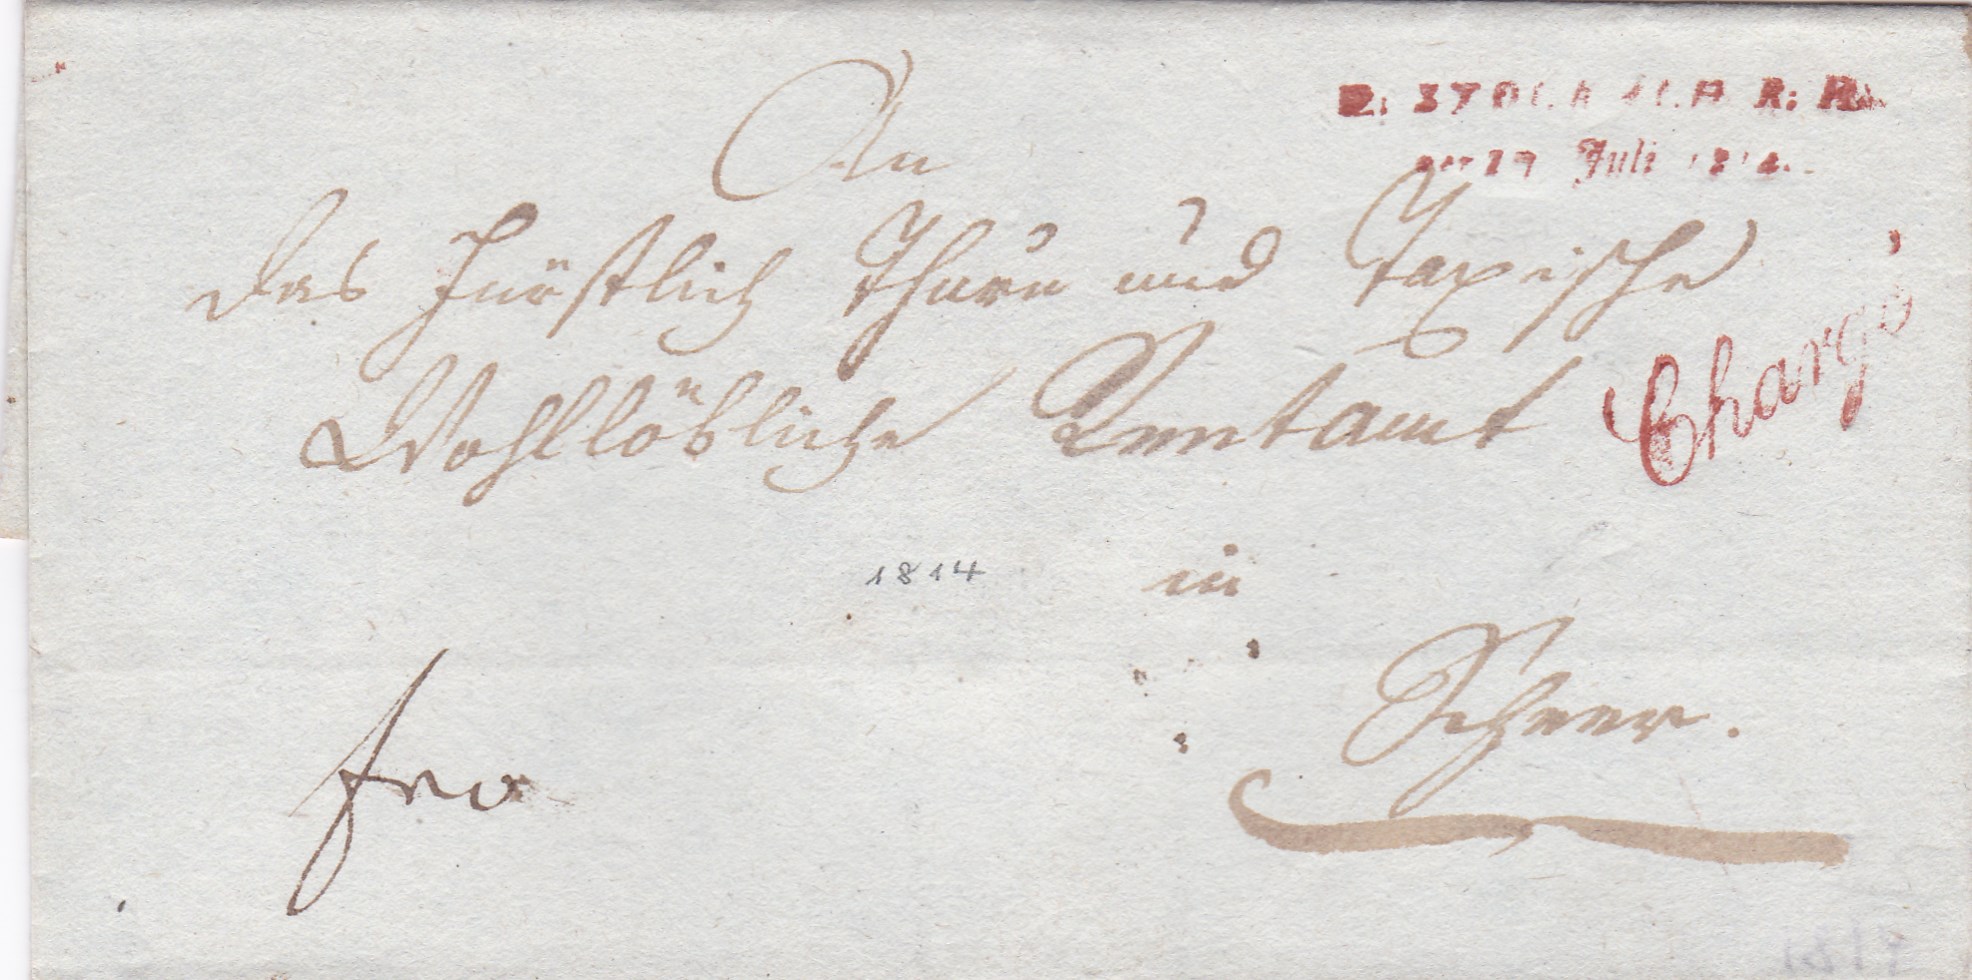 R. STOCKACH R: R.
den 29 Juli 1814.
An
das Fürstlich Thurn und Taxische
Wohllöbliche Rentamt
Chargé
1814
in
Scheer.
fro